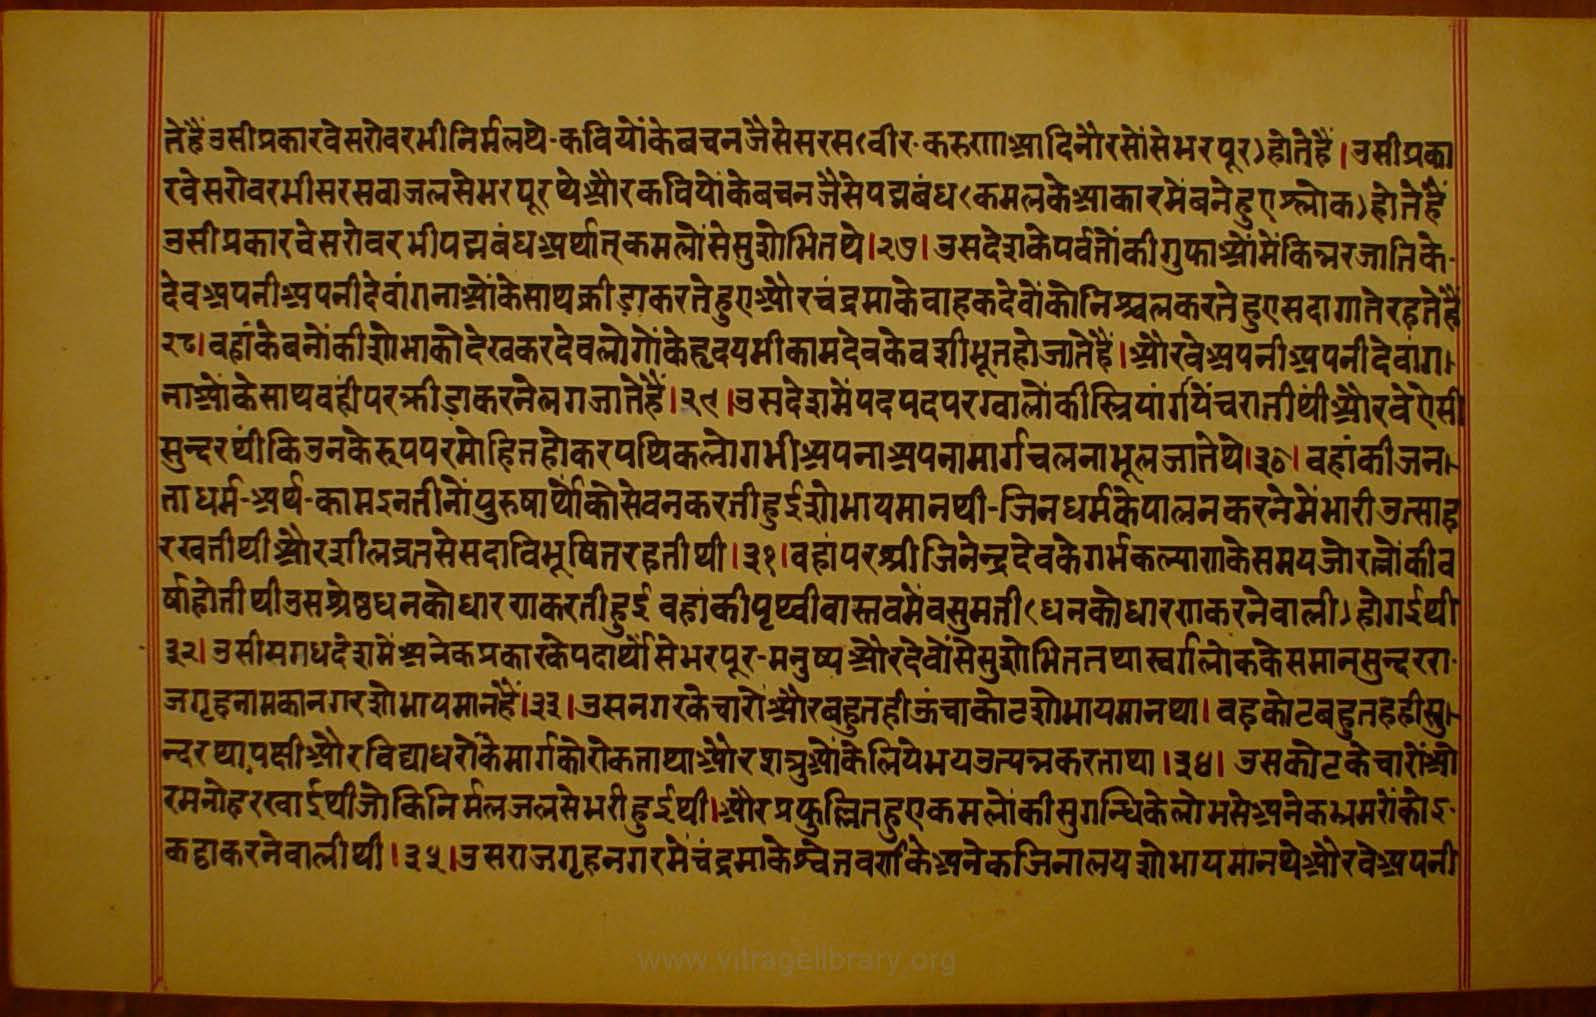 तेहैंउसीप्रकारवेसरोवरभीनिर्मलथे-कवियोंकेबचनजैसेसरस(वीर-करुणाआदिनौरसोंसेभरपूर)होतेहैं।उसीप्रका
रवेसरोवरभीसरसवाजलसेभरपूरथेऔरकवियोंकेबचनजैसेपद्मबंध(कमलकेआकारमेंबनेहुएश्लोक)होतेहैं
उसीप्रकारवेसरोवरभीपद्मबंधअर्थात्कमलोंसेसुशोभितथे।२७।उसदेशकेपर्वतोंकीगुफाओंमेंकिन्नरजातिके-
देवअपनीअपनीदेवांगनाओंकेसाथक्रीड़ाकरतेहुएऔरचंद्रमाकेवाहकदेवोंकोनिश्चलकरतेहुएसदागातेरहतेहैं
२८।वहांकेबनोंकीशोभाकोदेखकरदेवलोगोंकेहृदयभीकामदेवकेवशीभूतहोजातेहैं।औरवेअपनीअपनीदेवांग।
नाओंकेसाथवहींपरक्रीड़ाकरनेलगजातेहैं।२९।उसदेशमेंपदपदपरग्वालोंकीस्त्रियांर्गायेंचरातीथींऔरवेऐसी
सुन्दरथींकिउनकेरुपपरमोहितहोकरपथिकलोगभीअपनाअपनामार्गचलनाभूलजातेथे।३०।वहांकीजन।-
ताधर्म-अर्थ-कामइनतीनोंपुरुषार्थोंकोसेवनकरतीहुईशोभायमानथी-जिनधर्मकेपालनकरनेमेंभारीउत्साह
रखतीथीऔरशीलव्रतसेसदाविभूषितरहतीथी।३१।वहांपरश्रीजिनेन्द्रदेवकेगर्भकल्याणकेसमयजोरत्नोंकीव
र्षाहोतीथीउसश्रेष्ठधनकोधारणकरतीहुई वहांकीपृथ्वीवास्तवमेंवसुमती(धनकोधारणकरनेवाली)होगईथी
३२।उसीमगधदेशमेंअनेकप्रकारकेपदार्थोंसेभरपूर-मनुष्यऔरदेवोंसेसुशोभिततथास्वर्गलोककेसमानसुन्दररा-
जगृहनामकानगरशोभायमानहैं।३३।उसनगरकेचारोंऔरबहुतहीऊंचाकोटशोभायमानथा।वहकोटबहुतहहीसु।-
न्दरथा,पक्षीऔरविद्याधरोंकेमार्गकोरोकताथाऔरशत्रुओंकेलियेभयउत्पन्नकरताथा।३४। उसकोटकेचारोंओ
रमनोहरखाईथीजोकिनिर्मलजलसेभरीहुईथी।औरप्रफुल्लितहुएकमलोंकीसुगन्धिकेलोभसेअनेकभ्रमरोंकोइ-
कट्ठाकरनेवालीथी।३५।उसराजगृहनगरमेंचंद्रमाकेश्वेतवर्णकेअनेकजिनालयशोभायमानथेऔरवेअपनी
www.vitragelibrary.org